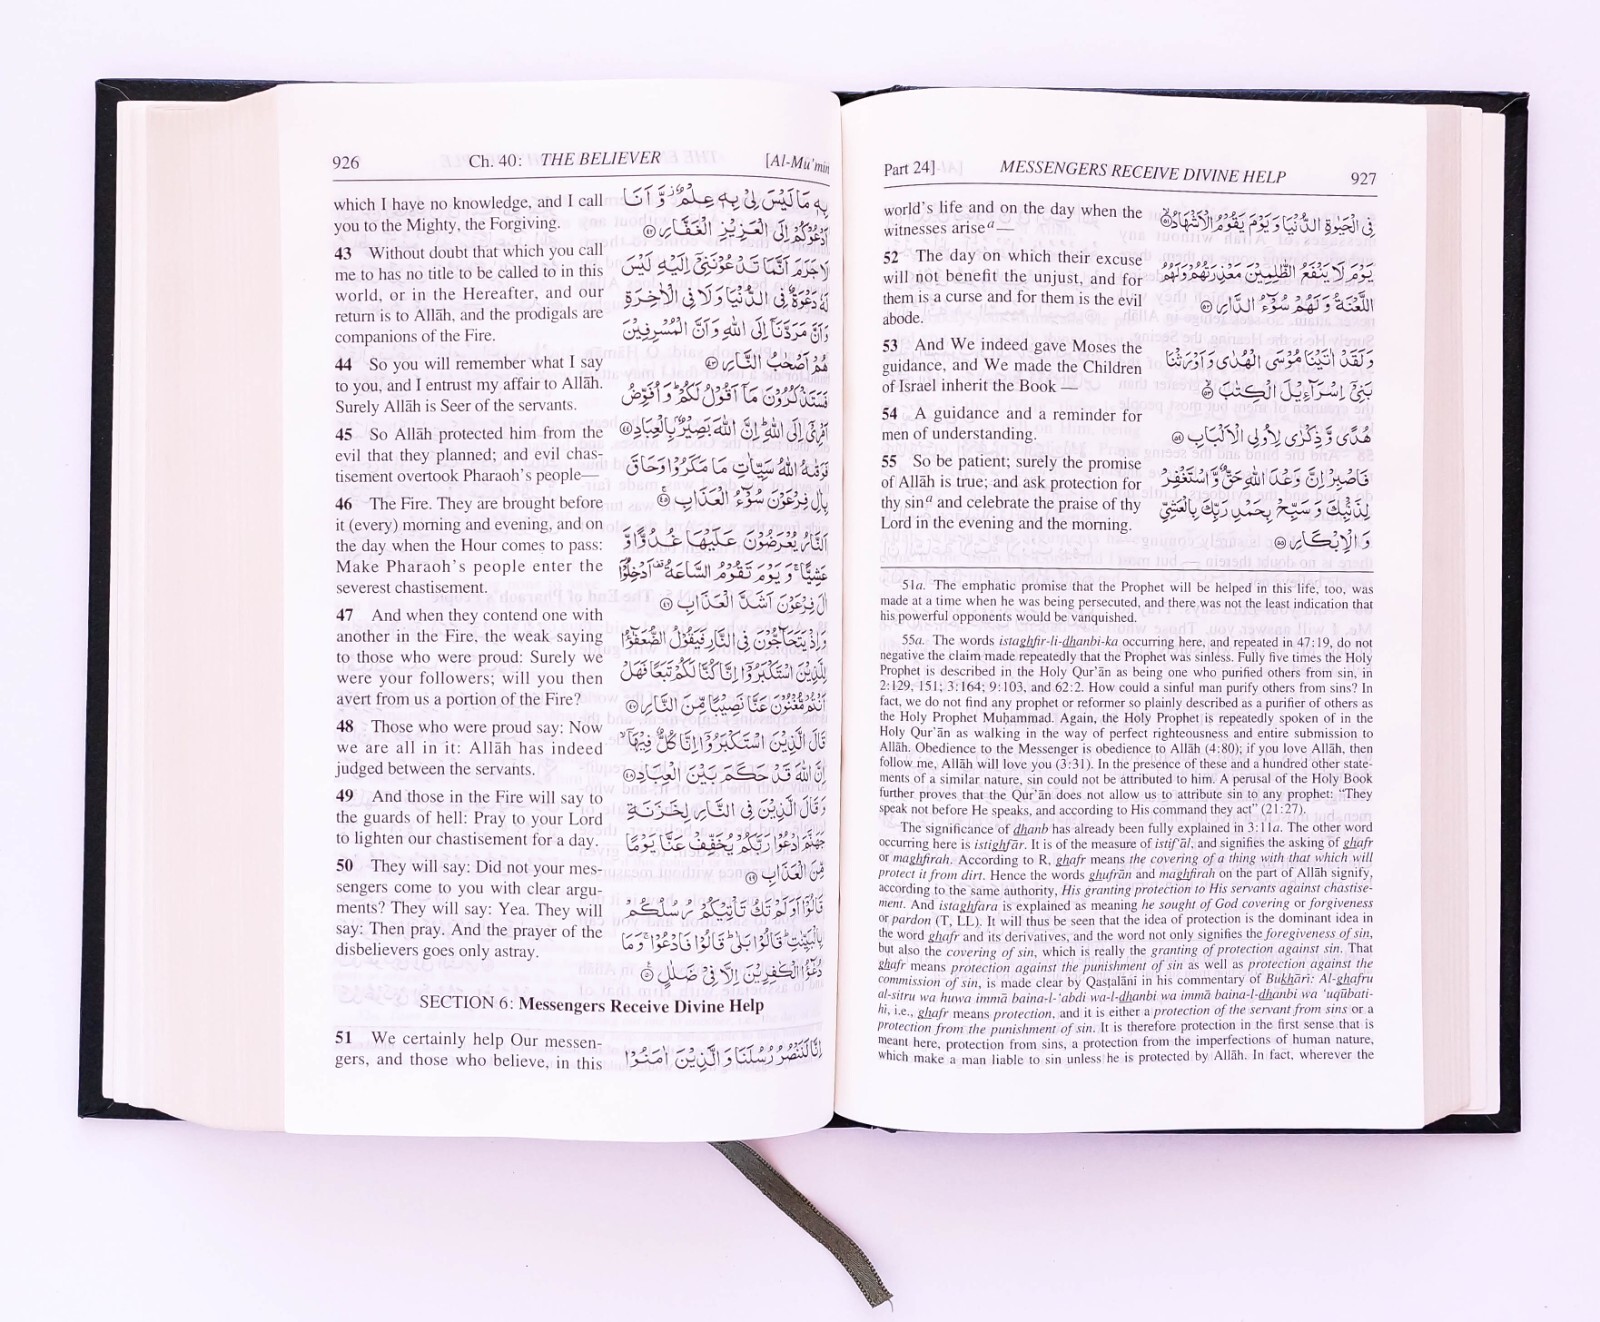 926 Ch. 40: THE BELIEVER [Al-Mu'min
which I have no knowledge, and I call
you to the Mighty, the Forgiving.
43 Without doubt that which you call
me to has no title to be called to in this
world, or in the Hereafter, and our
return is to Allāh, and the prodigals are
companions of the Fire.
44 So you will remember what I say
to you, and I entrust my affair to Allāh.
Surely Allāh is Seer of the servants.
45 So Allāh protected him from the
evil that they planned; and evil chas-
tisement overtook Pharaoh's people—
46 The Fire. They are brought before
it (every) morning and evening, and on
the day when the Hour comes to pass:
Make Pharaoh's people enter the
severest chastisement.
47 And when they contend one with
another in the Fire, the weak saying
to those who were proud: Surely we
were your followers; will you then
avert from us a portion of the Fire?
48 Those who were proud say: Now
we are all in it: Allāh has indeed
judged between the servants.
49 And those in the Fire will say to
the guards of hell: Pray to your Lord
to lighten our chastisement for a day.
50 They will say: Did not your mes-
sengers come to you with clear argu-
ments? They will say: Yea. They will
say: Then pray. And the prayer of the
disbelievers goes only astray.
بِهٖ مَا لَيْسَ لِيْ بِهٖ عِلْمٌ ۫ وَّ اَنَا
اَدْعُوْكُمْ اِلَى الْعَزِيْزِ الْغَفَّارِ ۝۴۲
لَا جَرَمَ اَنَّمَا تَدْعُوْنَنِيْٓ اِلَيْهِ لَيْسَ
لَهٗ دَعْوَةٌ فِي الدُّنْيَا وَلَا فِي الْاٰخِرَةِ
وَاَنَّ مَرَدَّنَآ اِلَى اللّٰهِ وَاَنَّ الْمُسْرِفِيْنَ
هُمْ اَصْحٰبُ النَّارِ ۝۴۳
فَسَتَذْكُرُوْنَ مَآ اَقُوْلُ لَكُمْ ؕ وَاُفَوِّضُ
اَمْرِيْٓ اِلَى اللّٰهِ ؕ اِنَّ اللّٰهَ بَصِيْرٌۢ بِالْعِبَادِ ۝۴۴
فَوَقٰىهُ اللّٰهُ سَيِّاٰتِ مَا مَكَرُوْا وَحَاقَ
بِاٰلِ فِرْعَوْنَ سُوْٓءُ الْعَذَابِ ۝۴۵
اَلنَّارُ يُعْرَضُوْنَ عَلَيْهَا غُدُوًّا وَّ
عَشِيًّا ۚ وَيَوْمَ تَقُوْمُ السَّاعَةُ ۫ اَدْخِلُوْٓا
اٰلَ فِرْعَوْنَ اَشَدَّ الْعَذَابِ ۝۴۶
وَاِذْ يَتَحَآجُّوْنَ فِي النَّارِ فَيَقُوْلُ الضُّعَفٰٓؤُا
لِلَّذِيْنَ اسْتَكْبَرُوْٓا اِنَّا كُنَّا لَكُمْ تَبَعًا فَهَلْ
اَنْتُمْ مُّغْنُوْنَ عَنَّا نَصِيْبًا مِّنَ النَّارِ ۝۴۷
قَالَ الَّذِيْنَ اسْتَكْبَرُوْٓا اِنَّا كُلٌّ فِيْهَآ ۙ
اِنَّ اللّٰهَ قَدْ حَكَمَ بَيْنَ الْعِبَادِ ۝۴۸
وَقَالَ الَّذِيْنَ فِي النَّارِ لِخَزَنَةِ
جَهَنَّمَ ادْعُوْا رَبَّكُمْ يُخَفِّفْ عَنَّا يَوْمًا
مِّنَ الْعَذَابِ ۝۴۹
قَالُوْٓا اَوَلَمْ تَكُ تَأْتِيْكُمْ رُسُلُكُمْ
بِالْبَيِّنٰتِ ؕ قَالُوْا بَلٰى ؕ قَالُوْا فَادْعُوْا ۚ وَمَا
دُعٰٓؤُا الْكٰفِرِيْنَ اِلَّا فِيْ ضَلٰلٍ ۝۵۰
SECTION 6: Messengers Receive Divine Help
51 We certainly help Our messen-
gers, and those who believe, in this
اِنَّا لَنَنْصُرُ رُسُلَنَا وَالَّذِيْنَ اٰمَنُوْا
Part 24] MESSENGERS RECEIVE DIVINE HELP 927
world's life and on the day when the
witnesses arise a—
52 The day on which their excuse
will not benefit the unjust, and for
them is a curse and for them is the evil
abode.
53 And We indeed gave Moses the
guidance, and We made the Children
of Israel inherit the Book —
54 A guidance and a reminder for
men of understanding.
55 So be patient; surely the promise
of Allāh is true; and ask protection for
thy sin a and celebrate the praise of thy
Lord in the evening and the morning.
فِي الْحَيٰوةِ الدُّنْيَا وَيَوْمَ يَقُوْمُ الْاَشْهَادُ ۝۵۱
يَوْمَ لَا يَنْفَعُ الظّٰلِمِيْنَ مَعْذِرَتُهُمْ وَلَهُمُ
اللَّعْنَةُ وَلَهُمْ سُوْٓءُ الدَّارِ ۝۵۲
وَلَقَدْ اٰتَيْنَا مُوْسَى الْهُدٰى وَاَوْرَثْنَا
بَنِيْٓ اِسْرَآءِيْلَ الْكِتٰبَ ۝۵۳
هُدًى وَّ ذِكْرٰى لِاُولِي الْاَلْبَابِ ۝۵۴
فَاصْبِرْ اِنَّ وَعْدَ اللّٰهِ حَقٌّ وَّاسْتَغْفِرْ
لِذَنْۢبِكَ وَسَبِّحْ بِحَمْدِ رَبِّكَ بِالْعَشِيِّ
وَالْاِبْكَارِ ۝۵۵
51a. The emphatic promise that the Prophet will be helped in this life, too, was
made at a time when he was being persecuted, and there was not the least indication that
his powerful opponents would be vanquished.
55a. The words istaghfir-li-dhanbi-ka occurring here, and repeated in 47:19, do not
negative the claim made repeatedly that the Prophet was sinless. Fully five times the Holy
Prophet is described in the Holy Qur'ān as being one who purified others from sin, in
2:129, 151; 3:164; 9:103, and 62:2. How could a sinful man purify others from sins? In
fact, we do not find any prophet or reformer so plainly described as a purifier of others as
the Holy Prophet Muḥammad. Again, the Holy Prophet is repeatedly spoken of in the
Holy Qur'ān as walking in the way of perfect righteousness and entire submission to
Allāh. Obedience to the Messenger is obedience to Allāh (4:80); if you love Allāh, then
follow me, Allāh will love you (3:31). In the presence of these and a hundred other state-
ments of a similar nature, sin could not be attributed to him. A perusal of the Holy Book
further proves that the Qur'ān does not allow us to attribute sin to any prophet: "They
speak not before He speaks, and according to His command they act" (21:27).
The significance of dhanb has already been fully explained in 3:11a. The other word
occurring here is istighfār. It is of the measure of istif'āl, and signifies the asking of ghafr
or maghfirah. According to R, ghafr means the covering of a thing with that which will
protect it from dirt. Hence the words ghufrān and maghfirah on the part of Allāh signify,
according to the same authority, His granting protection to His servants against chastise-
ment. And istaghfara is explained as meaning he sought of God covering or forgiveness
or pardon (T, LL). It will thus be seen that the idea of protection is the dominant idea in
the word ghafr and its derivatives, and the word not only signifies the foregiveness of sin,
but also the covering of sin, which is really the granting of protection against sin. That
ghafr means protection against the punishment of sin as well as protection against the
commission of sin, is made clear by Qasṭalānī in his commentary of Bukhārī: Al-ghafru
al-sitru wa huwa immā baina-l-'abdi wa-l-dhanbi wa immā baina-l-dhanbi wa 'uqūbati-
hi, i.e., ghafr means protection, and it is either a protection of the servant from sins or a
protection from the punishment of sin. It is therefore protection in the first sense that is
meant here, protection from sins, a protection from the imperfections of human nature,
which make a man liable to sin unless he is protected by Allāh. In fact, wherever the